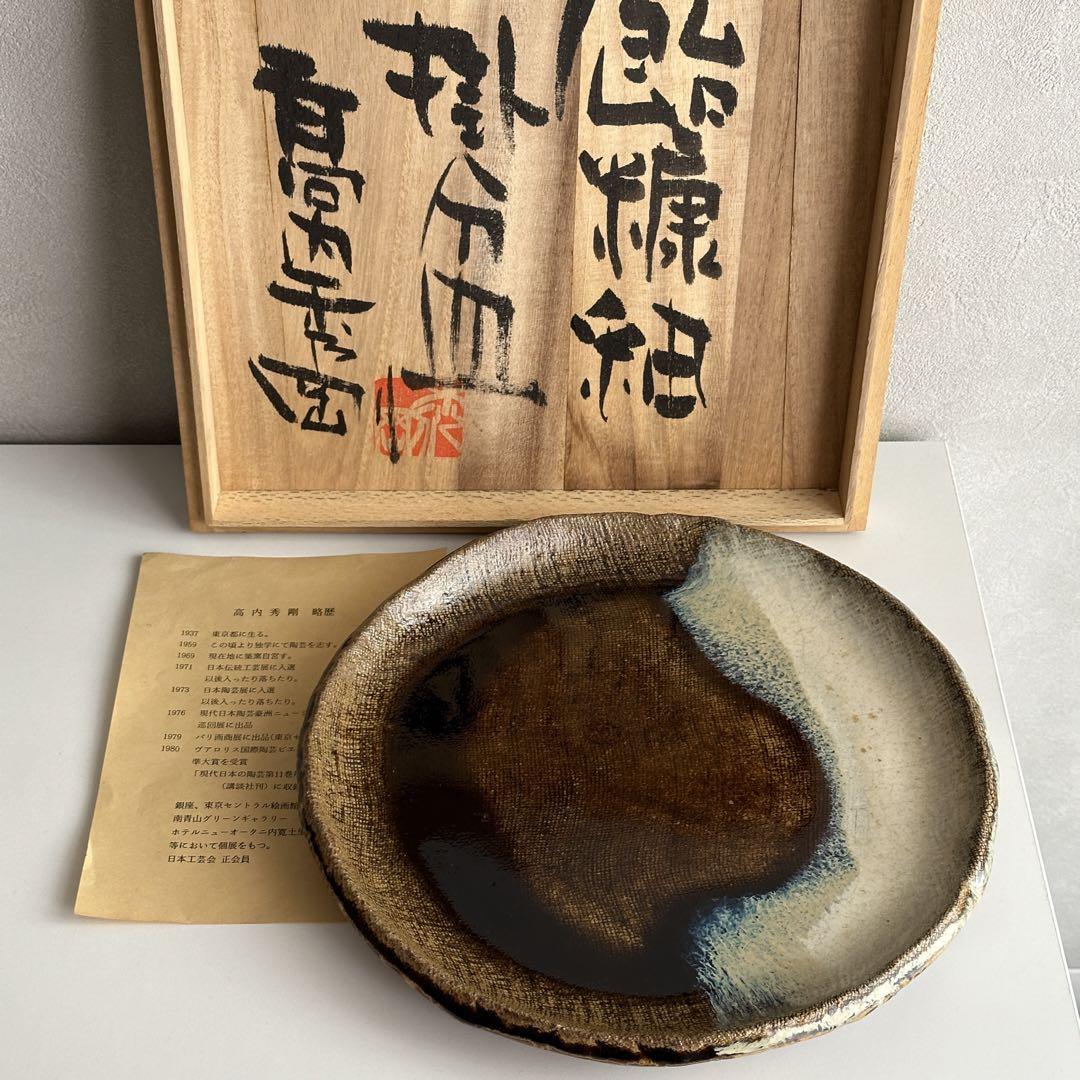 飴糠釉
掛分皿
高内秀剛
高内秀剛 略歴
1937 東京都に生る。
1959 この頃より独学にて陶芸を志す。
1969 現在地に築窯自営す。
1971 日本伝統工芸展に入選
以後入ったり落ちたり。
1973 日本陶芸展に入選
以後入ったり落ちたり。
1976 現代日本陶芸豪洲ニュージ
巡回展に出品
1979 パリ画商展に出品(東京セ
1980 ヴァロリス国際陶芸ビエ
準大賞を受賞
「現代日本の陶芸第11巻
(講談社刊)に収録
銀座、東京セントラル絵画館
南青山グリーンギャラリー
ホテルニューオータニ内寛土里
等において個展をもつ。
日本工芸会 正会員